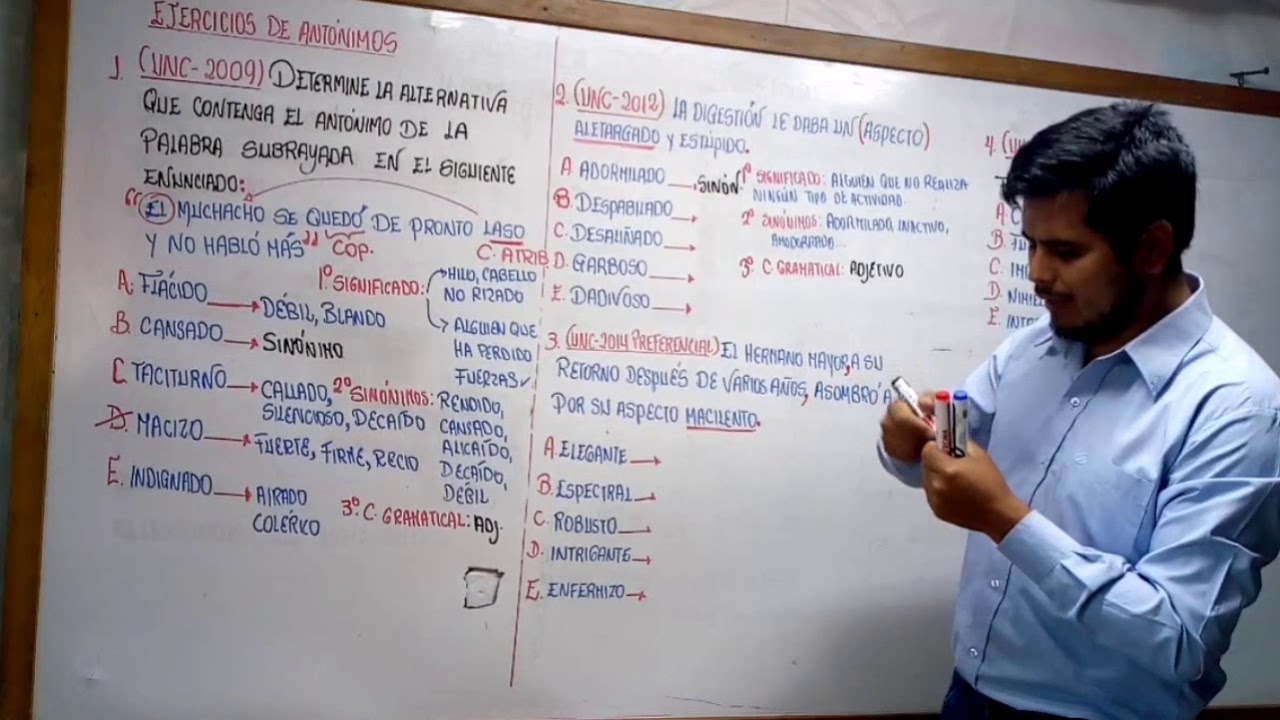 EJERCICIOS DE ANTÓNIMOS
1. (UNC-2009) DETERMINE LA ALTERNATIVA
QUE CONTENGA EL ANTÓNIMO DE LA
PALABRA SUBRAYADA EN EL SIGUIENTE
ENUNCIADO:
"EL MUCHACHO SE QUEDÓ DE PRONTO LASO
Y NO HABLÓ MÁS" COP. C. ATRIB
1º SIGNIFICADO: HILO, CABELLO
NO RIZADO
ALGUIEN QUE
HA PERDIDO
FUERZAS ✓
A. FLÁCIDO → DÉBIL, BLANDO
B. CANSADO → SINÓNIMO
C. TACITURNO → CALLADO,
SILENCIOSO, DECAÍDO
D. MACIZO → FUERTE, FIRME, RECIO
E. INDIGNADO → AIRADO
COLÉRICO
2º SINÓNIMOS: RENDIDO,
CANSADO,
ALICAÍDO,
DECAÍDO,
DÉBIL
3º C. GRAMATICAL: ADJ.
2. (UNC-2012) LA DIGESTIÓN LE DABA UN (ASPECTO)
ALETARGADO Y ESTÚPIDO.
A. ADORMILADO → SINÓN.
B. DESPABILADO →
C. DESALIÑADO →
D. GARBOSO →
E. DADIVOSO →
1º SIGNIFICADO: ALGUIEN QUE NO REALIZA
NINGÚN TIPO DE ACTIVIDAD.
2º SINÓNIMOS: ADORMILADO, INACTIVO,
AMODORRADO...
3º C. GRAMATICAL: ADJETIVO
3. (UNC-2014 PREFERENCIAL) EL HERMANO MAYOR, A SU
RETORNO DESPUÉS DE VARIOS AÑOS, ASOMBRÓ A
POR SU ASPECTO MACILENTO.
A. ELEGANTE →
B. ESPECTRAL →
C. ROBUSTO →
D. INTRIGANTE →
E. ENFERMIZO →
4. (
A.
B.
C.
D.
E.